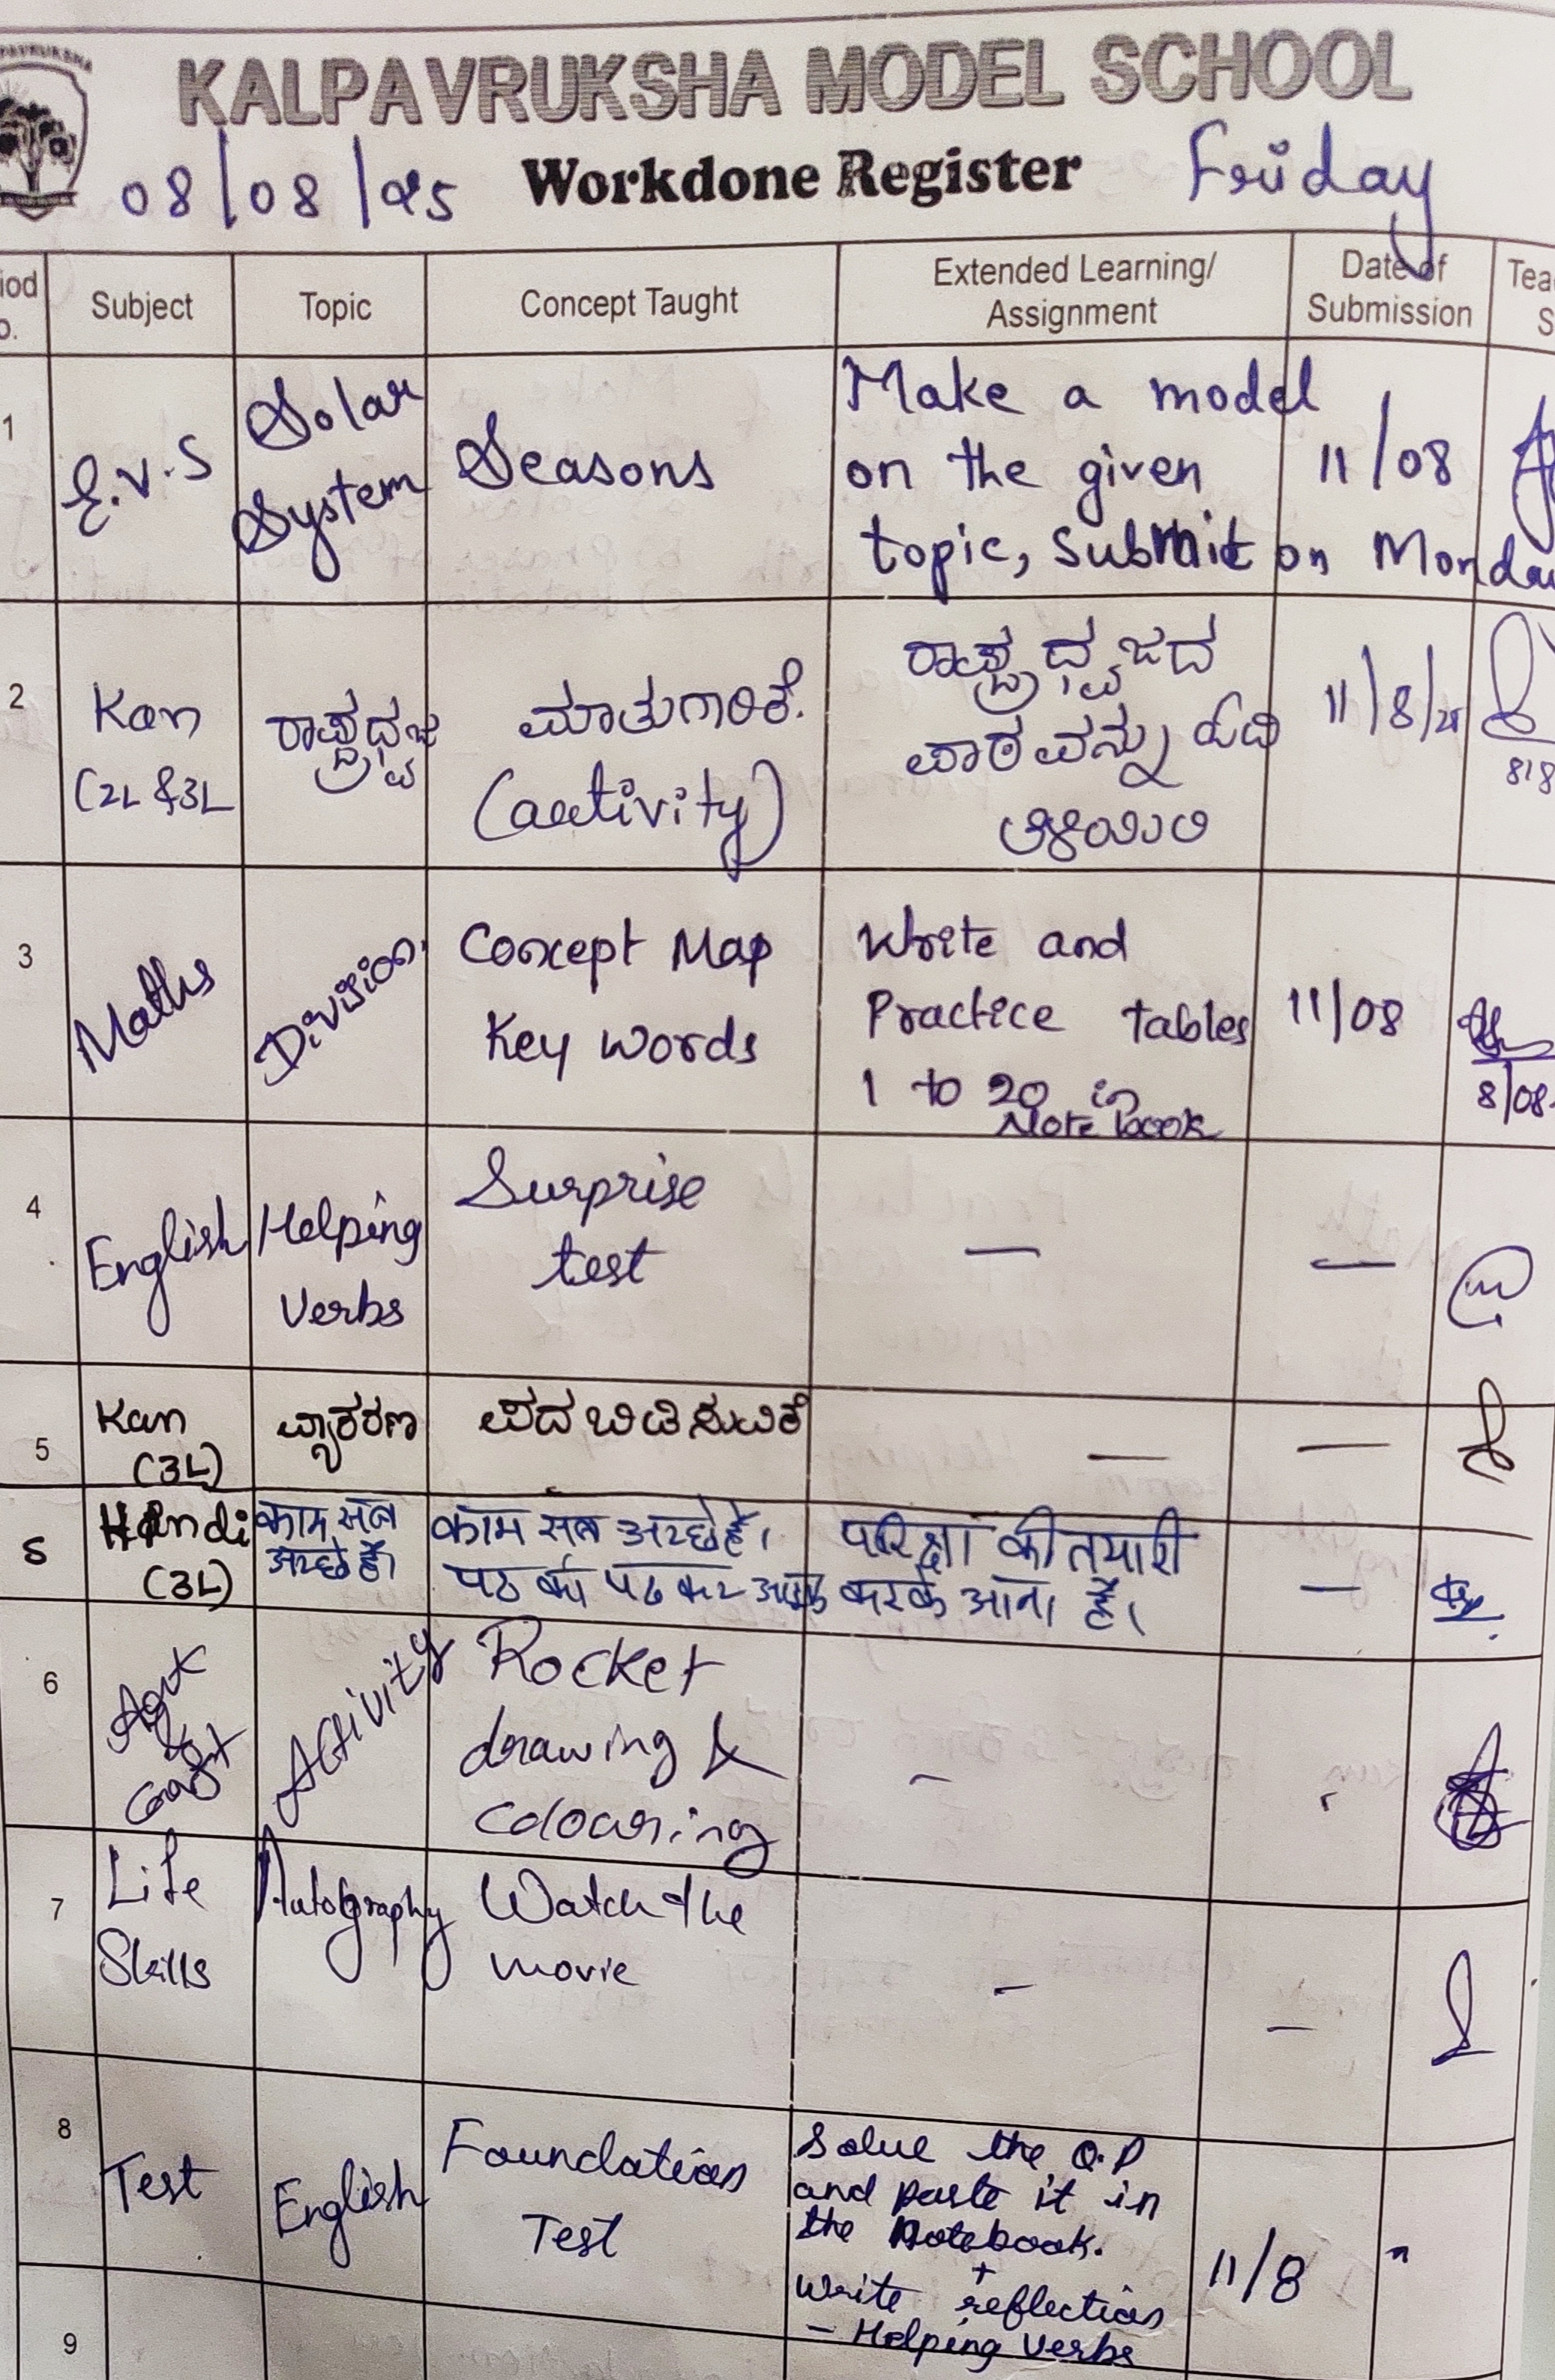 KALPAVRUKSHA MODEL SCHOOL
08/08/25 Workdone Register Friday
Subject Topic Concept Taught Extended Learning/ Assignment Date of Submission
1 E.V.S Solar System Seasons Make a model
on the given 11/08
topic, submit on Monday
2 Kan (2L & 3L ರಾಷ್ಟ್ರಧ್ವಜ ಮಾತುಗಾರಿಕೆ. (activity) ರಾಷ್ಟ್ರಧ್ವಜದ
ಪಾಠವನ್ನು ಓದಿ 11/8/25
ತಿಳಿಯಿರಿ 8/8
3 Maths Division Concept Map Write and
Key words Practice tables 11/08
1 to 20 in 8/08
Note book
4 English Helping Verbs Surprise test — —
5 Kan (3L) ವ್ಯಾಕರಣ ಪದ ಬಿಡಿಸುವಿಕೆ — —
5 Hindi (3L) काम सब अच्छे हैं। काम सब अच्छे हैं। परिक्षा की तयारी
पठ को पढ कर करके आना है। —
6 Art & Craft Activity Rocket
drawing & -
colouring
7 Life Skills Autography Watch the
movie - —
8 Test English Foundation Test Solve the Q.P
and paste it in
the Notebook.
+ 11/8 "
Write reflection
- Helping Verbs
9